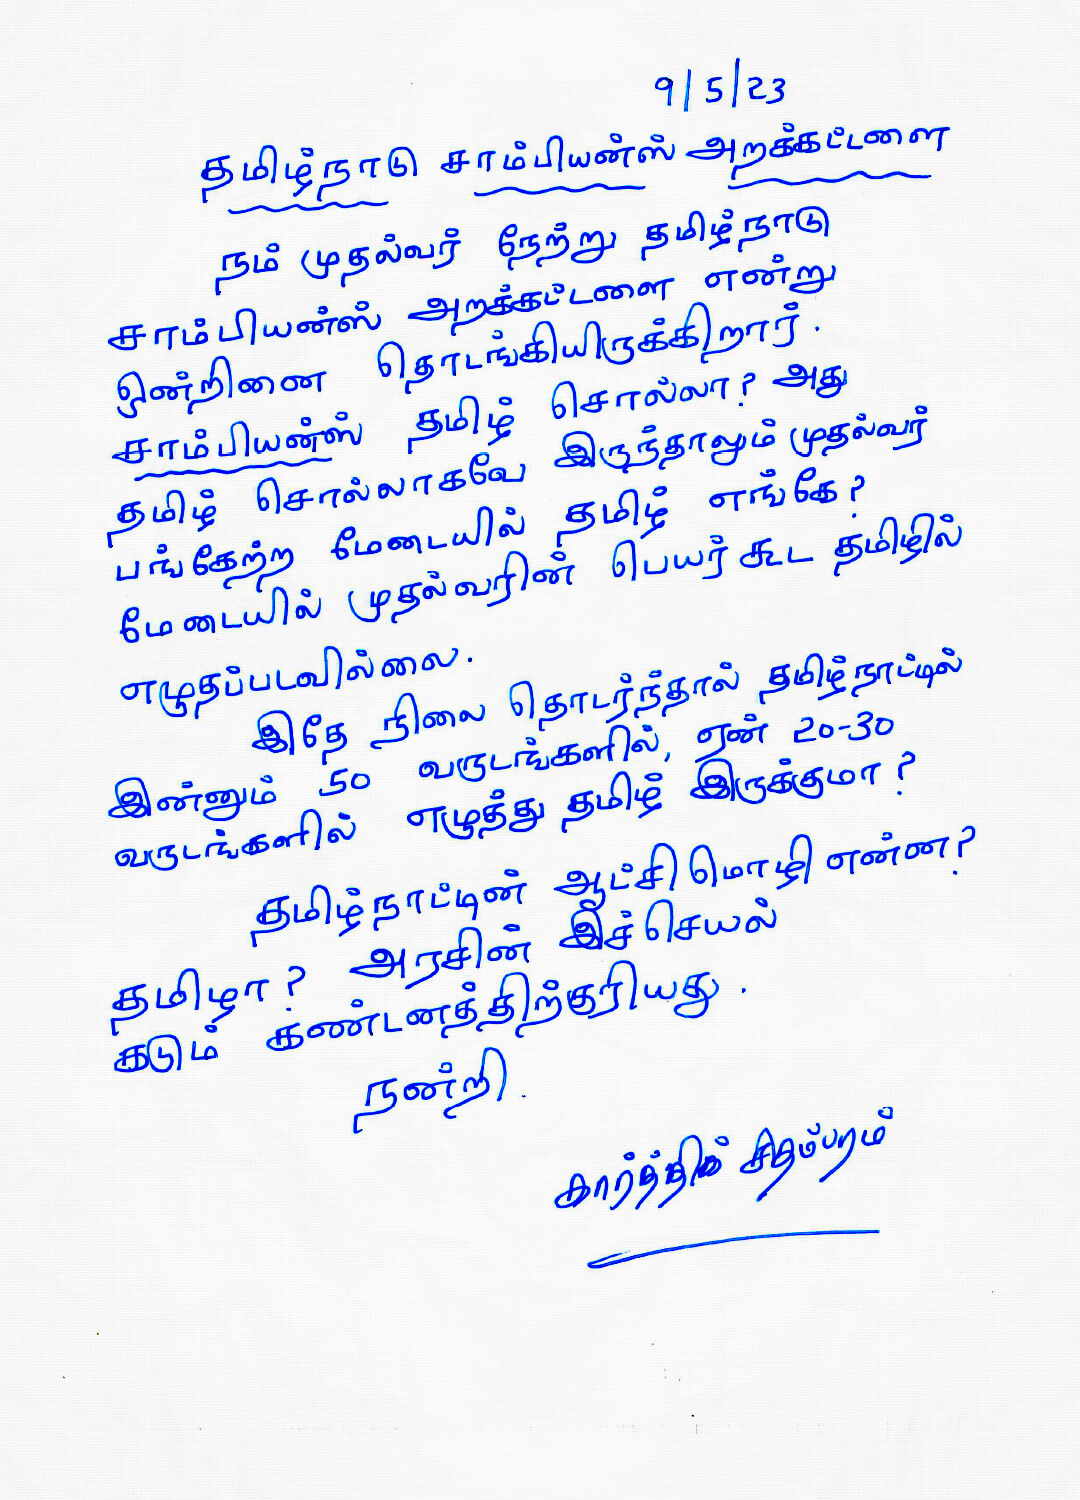 9/5/23
தமிழ்நாடு சாம்பியன்ஸ் அறக்கட்டளை
நம் முதல்வர் நேற்று தமிழ்நாடு
சாம்பியன்ஸ் அறக்கட்டளை என்று
ஒன்றினை தொடங்கியிருக்கிறார்.
சாம்பியன்ஸ் தமிழ் சொல்லா? அது
தமிழ் சொல்லாகவே இருந்தாலும் முதல்வர்
பங்கேற்ற மேடையில் தமிழ் எங்கே?
மேடையில் முதல்வரின் பெயர் கூட தமிழில்
எழுதப்படவில்லை.
இதே நிலை தொடர்ந்தால் தமிழ்நாட்டில்
இன்னும் 50 வருடங்களில், ஏன் 20-30
வருடங்களில் எழுத்து தமிழ் இருக்குமா?
தமிழ்நாட்டின் ஆட்சி மொழி என்ன?
தமிழா? அரசின் இச்செயல்
கடும் கண்டனத்திற்குரியது.
நன்றி.
கார்த்திக் சிதம்பரம்